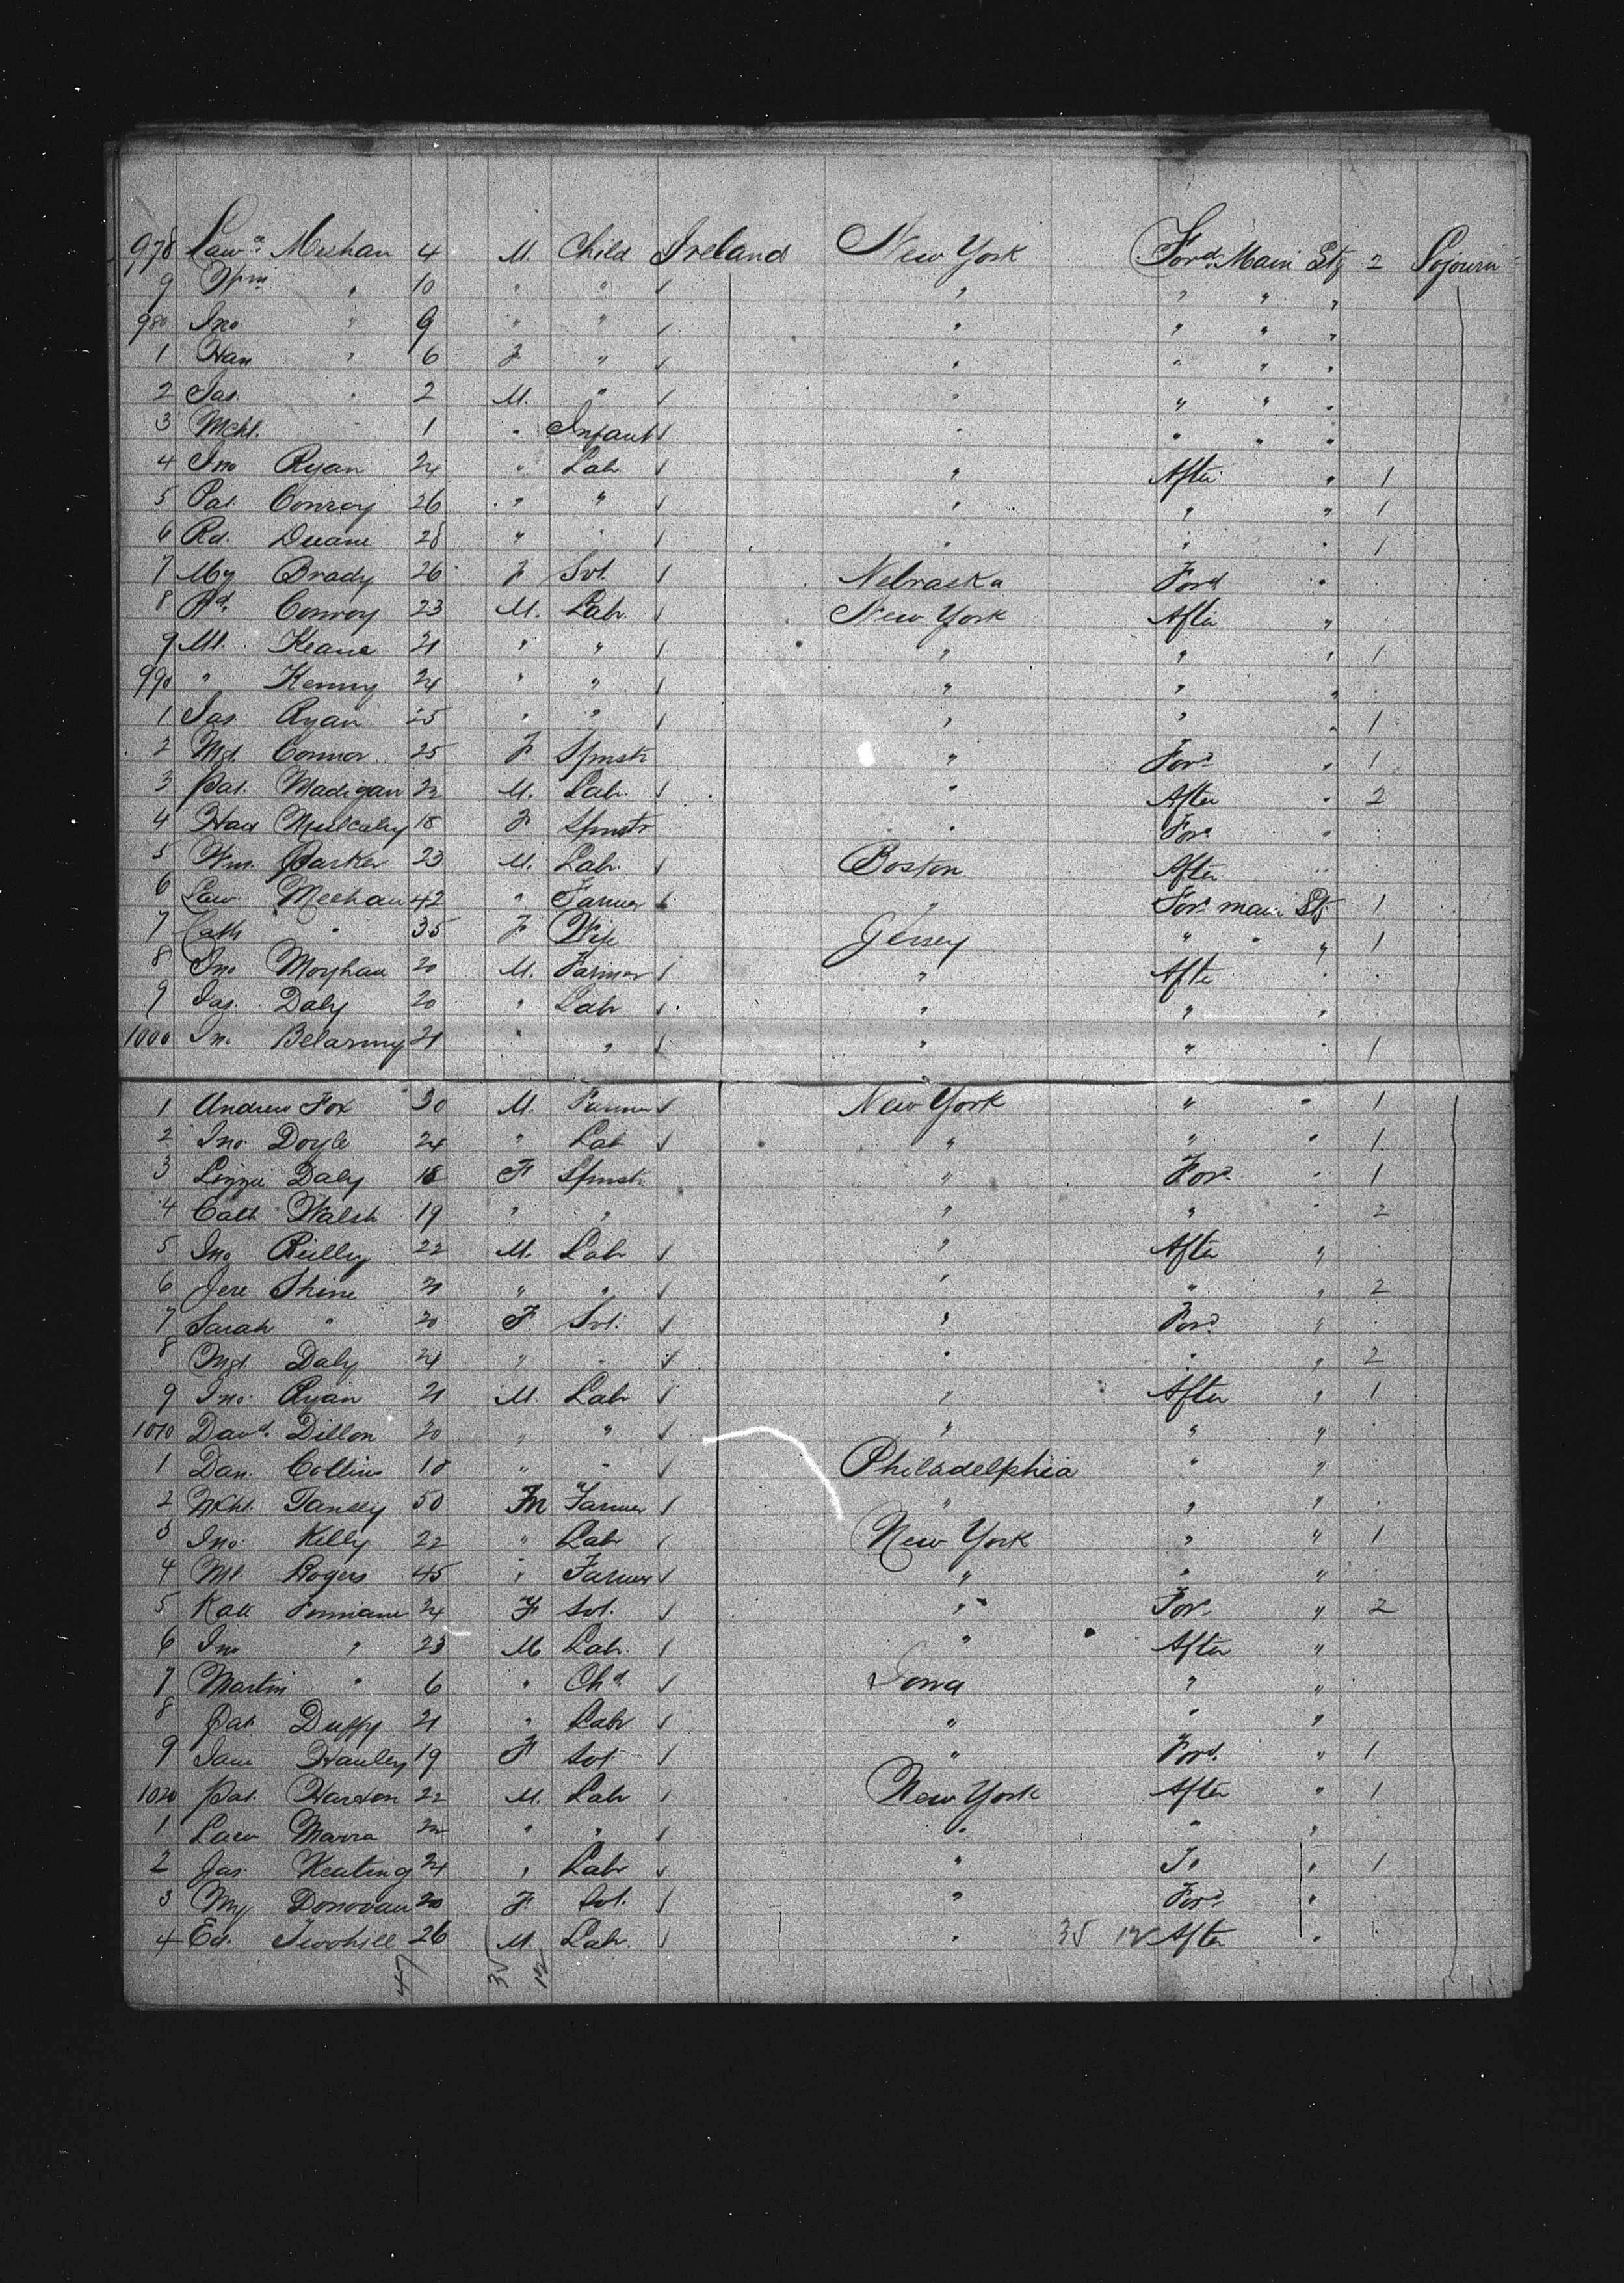 978 Lawce. Meehan 4 M. Child Ireland New York Ford. Main Stg 2 Sojourn
9 Wm " 10 " " " " " "
980 Jno " 9 " " " " " "
1 Han " 6 F " " " " "
2 Jas. " 2 M. " " " " "
3 Mchl. " 1 " Infant " " " "
4 Jno Ryan 24 " Labr " After " 1
5 Pat Conroy 26 " " " " " 1
6 Rd. Duane 28 " " " " " 1
7 My Brady 26 F Svt. Nebraska Ford "
8 Conroy 23 M. Labr. New York After "
9 Ml. Keane 21 " " " " " 1
990 " Kenny 24 " " " " "
1 Jas Ryan 25 " " " " " 1
2 Mgt. Connor 25 F Spnstr " Ford " 1
3 Pat. Madigan 22 M. Labr. " After " 2
4 Han Mulcahy 18 F Spnstr " For. "
5 Wm. Parker 23 M. Labr. Boston After "
6 Law Meehan 42 " Farmer " For. main Stg 1
7 Cath " 35 F Wife Jersey " " " 1
8 Jno Moyhan 20 M. Farmer " After "
9 Jas. Daly 20 " Labr " " "
1000 Jno. 21 " " " " " 1
1 Andrew Fox 30 M. Farmer New York " " 1
2 Jno. Doyle 24 " Labr " " " 1
3 Lizzie Daly 18 F Spnstr " For. " 1
4 Cath Walsh 19 " " " " " 2
5 Jno Reilly 22 M. Labr " After "
6 Jere Shine 21 " " " " " 2
7 Sarah " 20 F. Svt. " Ford. "
8 Mgt. Daly 24 " " " " " 2
9 Jno. Ryan 21 M. Labr " After " 1
1010 Davd. Dillon 20 " " " " "
1 Dan. Collins 18 " " Philadelphia " "
2 Mchl. Tansey 50 M Farmer " " "
3 Jno. Kelly 22 " Labr New York " " 1
4 Ml. Rogers 45 " Farmer " " "
5 Kate 24 F Svt. " For. " 2
6 Jno " 23 M Labr. " After "
7 Martin " 6 " Chd. Iowa " "
8 Pat Duffy 21 " Labr " " "
9 Hanley 19 F Svt " Ford. " 1
1020 Pat. 22 M. Labr New York After " 1
1 Law 22 " " " " "
2 Jas. Keating 24 " Labr " " 1
3 My Donovan 20 F. Svt. " Ford. "
4 Ed. Twohill 26 M. Labr. " 35 12 After "
47 35 12